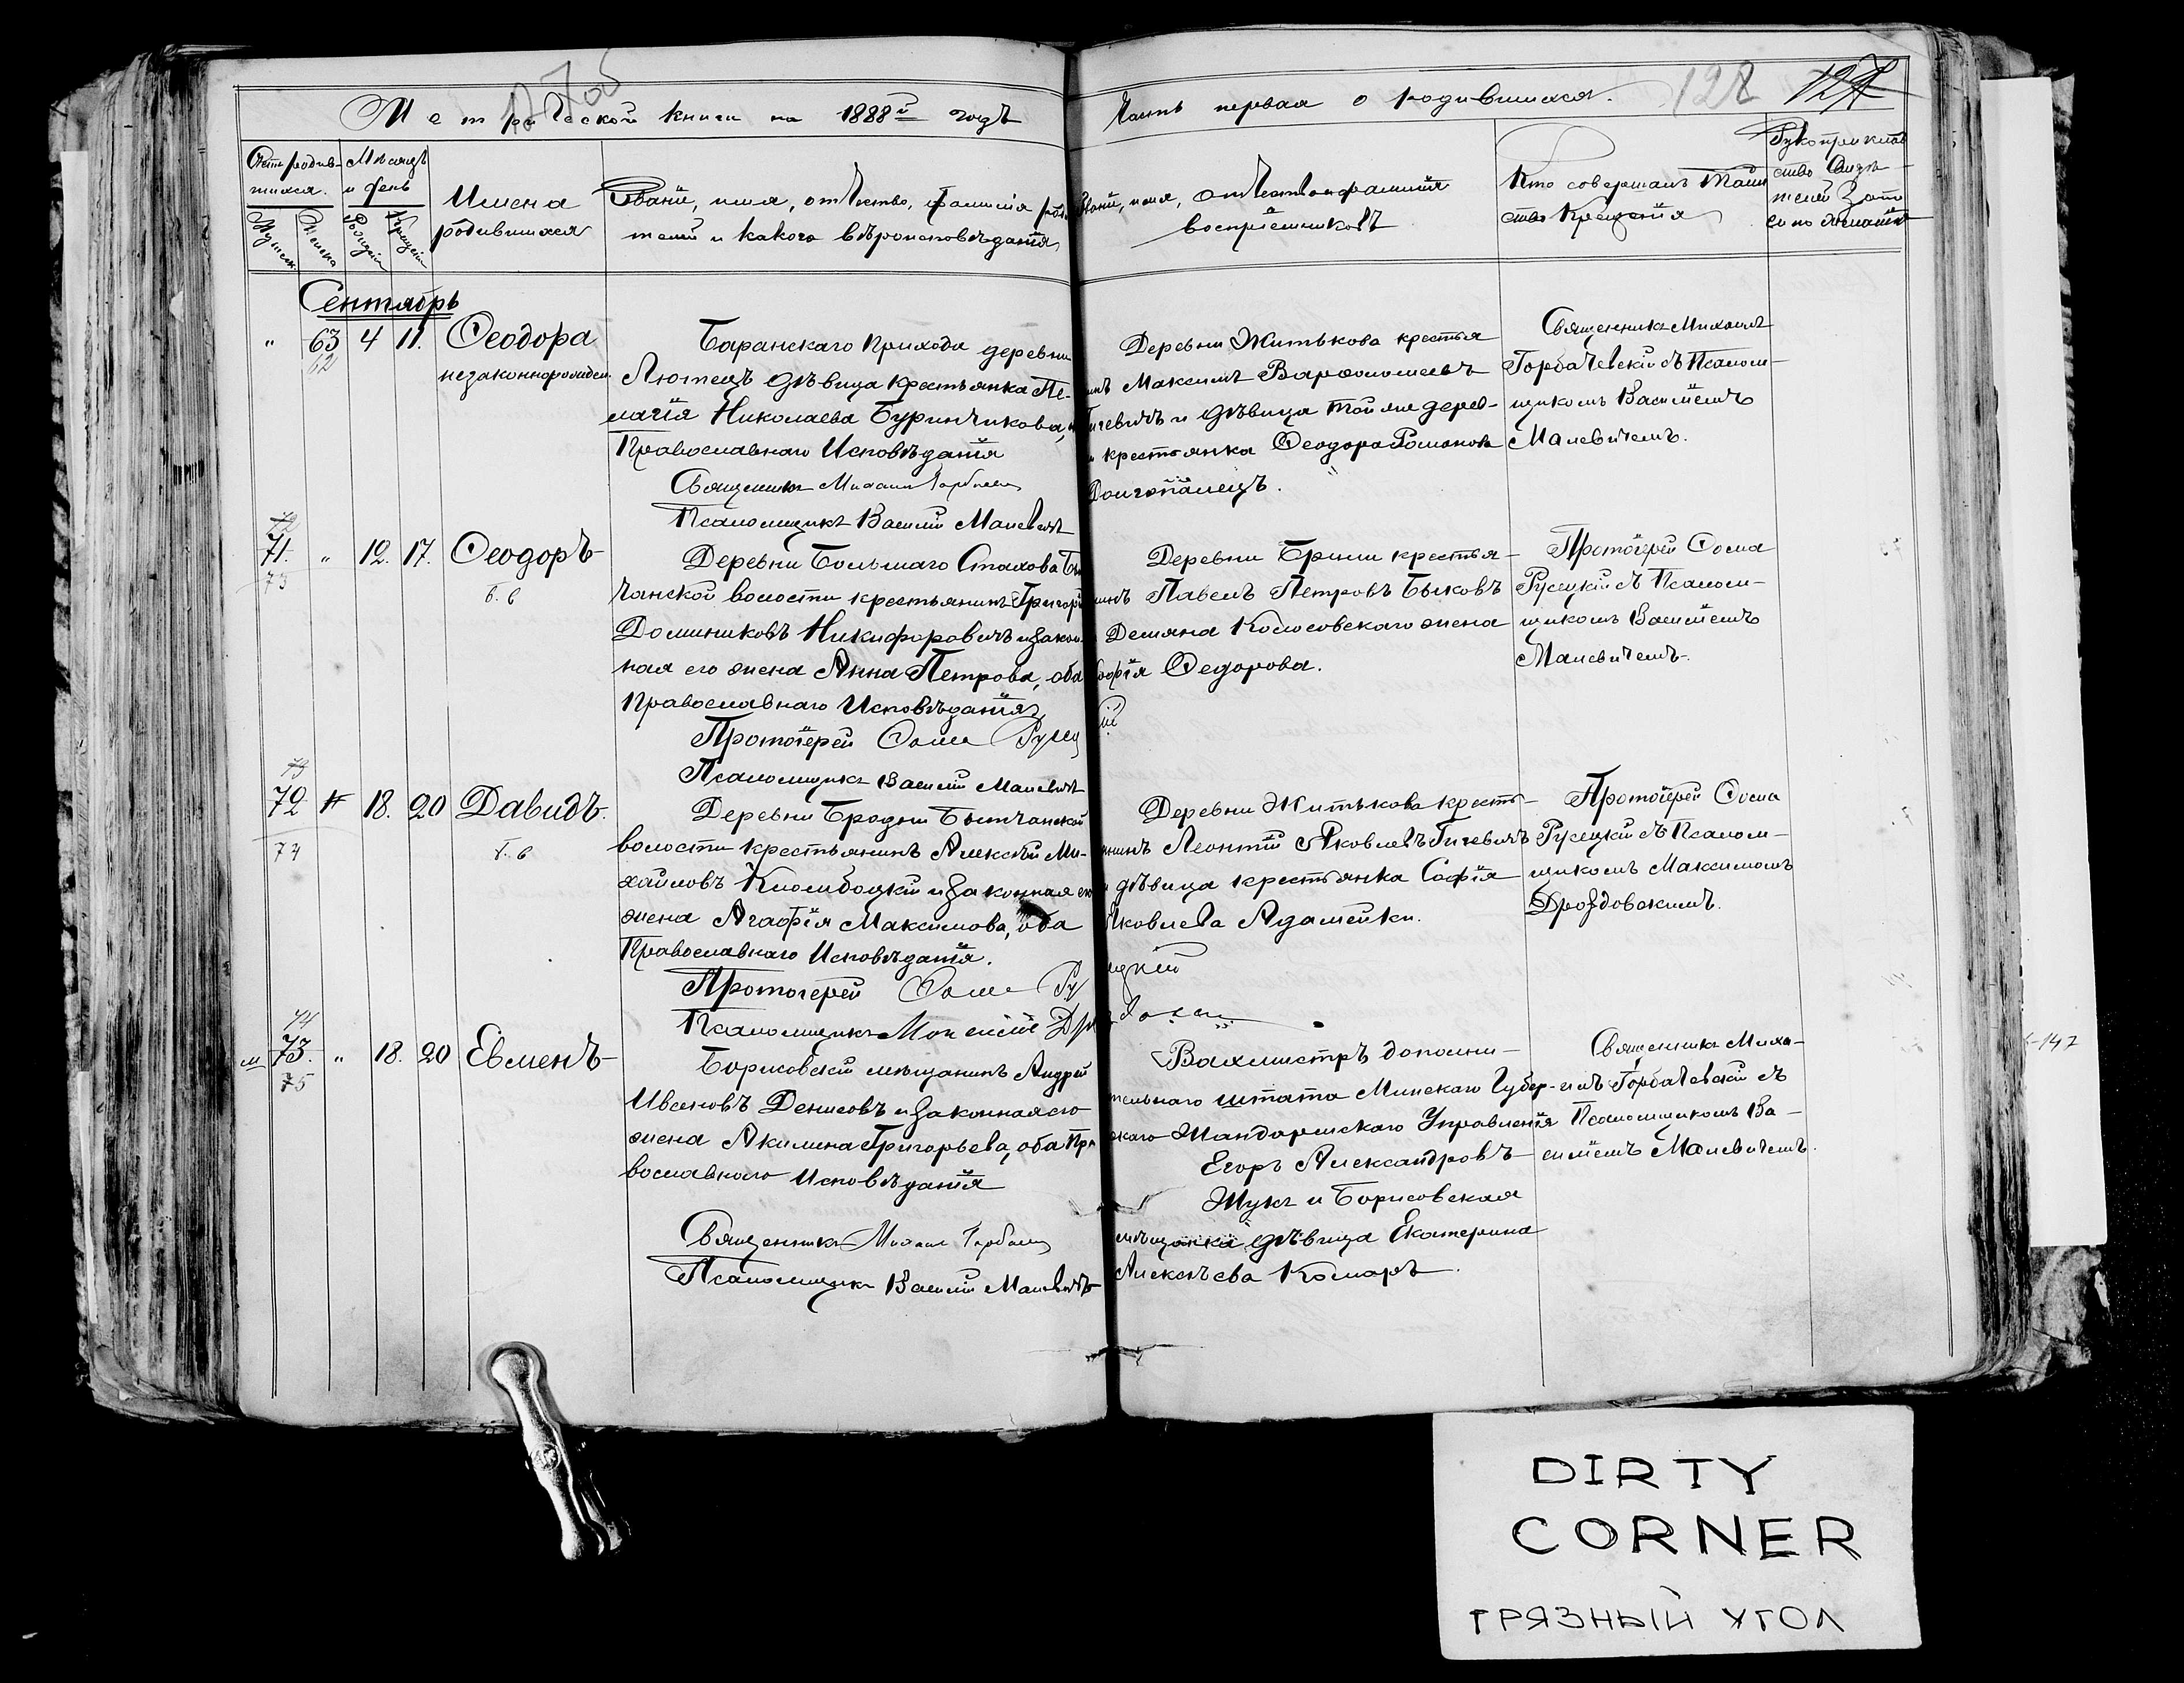 Метрической книги на 1888й годъ
Часть первая о родившихся.
128
127
Счетъ родив-
шихся.
Мѣсяцъ
и день
Имена
родившихся
Званіе, имя, отчество, фамилія роди-
телей и какого вѣроисповѣданія
Званіе, имя, отчество и фамилія
воспріемниковъ
Кто совершалъ Таин
ство Крещенія
Рукоприклад
ство Свидѣ-
телей Запи
си по желанію
Сентябрь
" 63 4 11. Ѳеодора
62
незаконнорожден.
Баранскаго прихода деревни
Лютецъ дѣвица крестьянка Пе-
лагія Николаева Буринчикова,
Православнаго Исповѣданія
Священникъ Михаилъ
Псаломщикъ Василій Малевичъ
Деревни Житькова крестья
нинъ Максимъ Варѳоломеевъ
Гичевичъ и дѣвица той же дерев-
и крестьянка Ѳеодора Романова
Священникъ Михаилъ
Горбачевскій съ Псалом-
щикомъ Василіемъ
Малевичемъ.
72
71. " 12. 17. Ѳеодоръ
73
Деревни Большаго Стахова
чанской волости крестьянинъ Григорій
Доминиковъ Никифоровичъ и закон-
ная его жена Анна Петрова, оба
Православнаго Исповѣданія
Протоіерей Ѳома Русец
кій
Псаломщикъ Василій Малевичъ
Деревни Брили крестья-
нинъ Павелъ Петровъ Быковъ
Демяна Колосовскаго жена
Софія Ѳедорова.
Протоіерей Ѳома
Русецкій съ Псалом-
щикомъ Василіемъ
Малевичемъ.
73
72 " 18. 20 Давидъ.
74
Деревни Бродни Бытчанской
волости крестьянинъ Алексѣй Ми-
хайловъ и законная его
жена Агафія Максимова, оба
Православнаго Исповѣданія.
Протоіерей Ѳома Ру
сецкій
Псаломщикъ
Деревни Житькова кресть-
янинъ Леонтій Яковлевъ Гичевичъ
и дѣвица крестьянка Софія
Яковлева Адамейки.
Протоіерей Ѳома
Русецкій съ Псалом-
щикомъ Максимомъ
Дроздовскимъ.
74
73. " 18. 20 Евменъ
75
Борисовскій мѣщанинъ Андрей
Ивановъ Денисовъ и законная его
жена Акилина Григорьева, оба Пра
вославнаго Исповѣданія
Священникъ Михаилъ
Псаломщикъ Василій Малевичъ
Вахмистръ дополни-
тельнаго штата Минскаго Губер-
нскаго Жандармскаго Управленія
Егоръ Александровъ
Жукъ и Борисовская
мѣщанка дѣвица Екатерина
Алексѣева Комаръ.
Священникъ Миха-
илъ Горбачевскій съ
Псаломщикомъ Ва-
силіемъ Малевичемъ.
DIRTY
CORNER
ГРЯЗНЫЙ УГОЛ